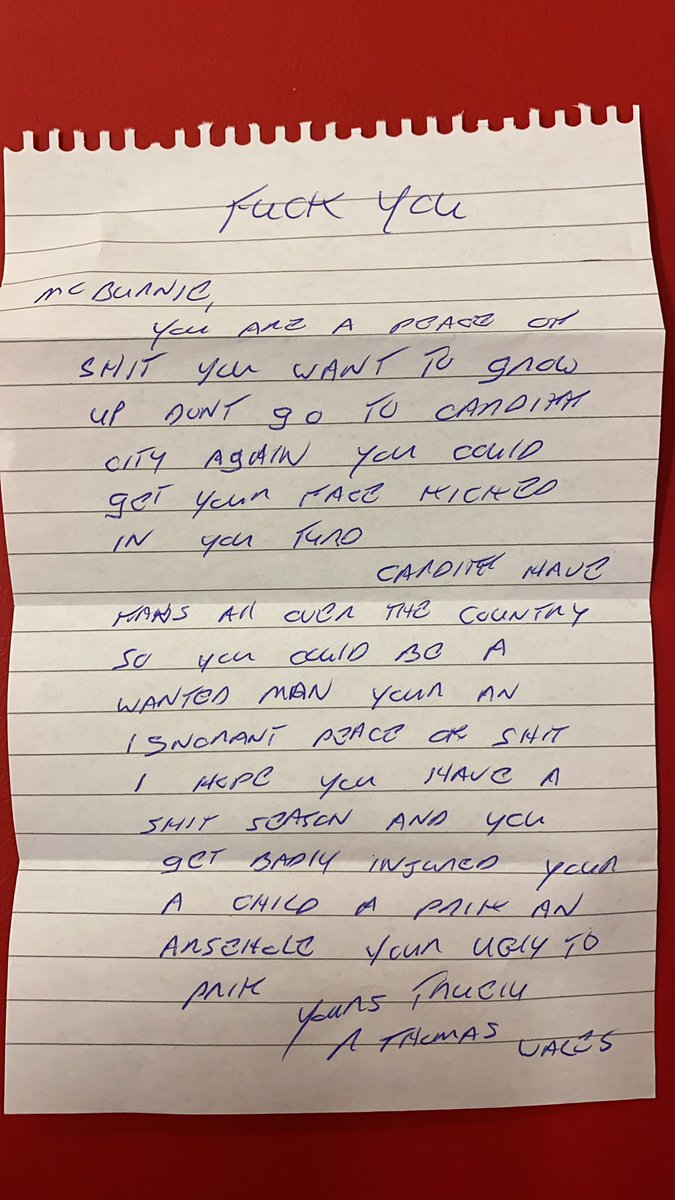 FUCK YOU
MCBURNIE,
YOU ARE A PEACE OF
SHIT YOU WANT TO grow
UP DONT gO TO CARDIFF
CITY AgAIN YOU COULD
gET YOUR FACE KICKED
IN YOU TURD
CARDIFF HAVE
FANS All OVER THE COUNTRY
SO YOU COULD BE A
WANTED MAN YOUR AN
IgNORANT PEACE OF SHIT
I HOPE YOU HAVE A
SHIT SEASON AND YOU
gET BADLY INJURED YOUR
A CHILD A PRIK AN
ARSEHOLE YOUR UGLY TO
PRIK
YOURS TRUELY
R THOMAS WALES